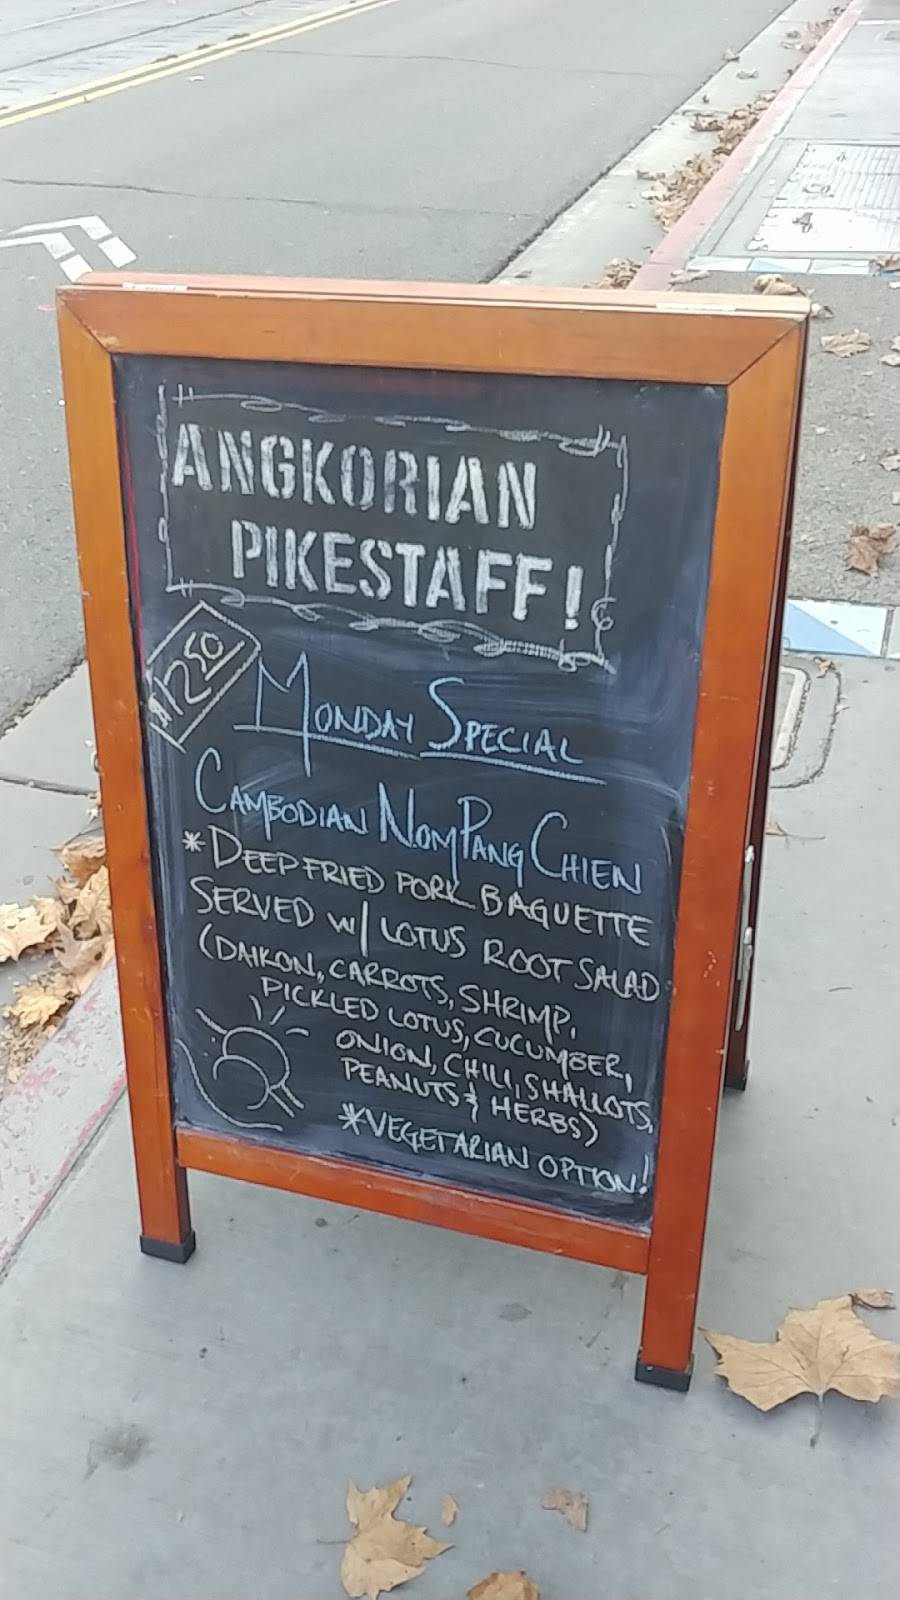 ANGKORIAN
PIKESTAFF!
$12.50
MONDAY SPECIAL
CAMBODIAN NOM PANG CHIEN
*DEEP FRIED PORK BAGUETTE
SERVED W/ LOTUS ROOT SALAD
(DAIKON, CARROTS, SHRIMP,
PICKLED LOTUS, CUCUMBER,
ONION, CHILI, SHALLOTS,
PEANUTS & HERBS)
*VEGETARIAN OPTION!